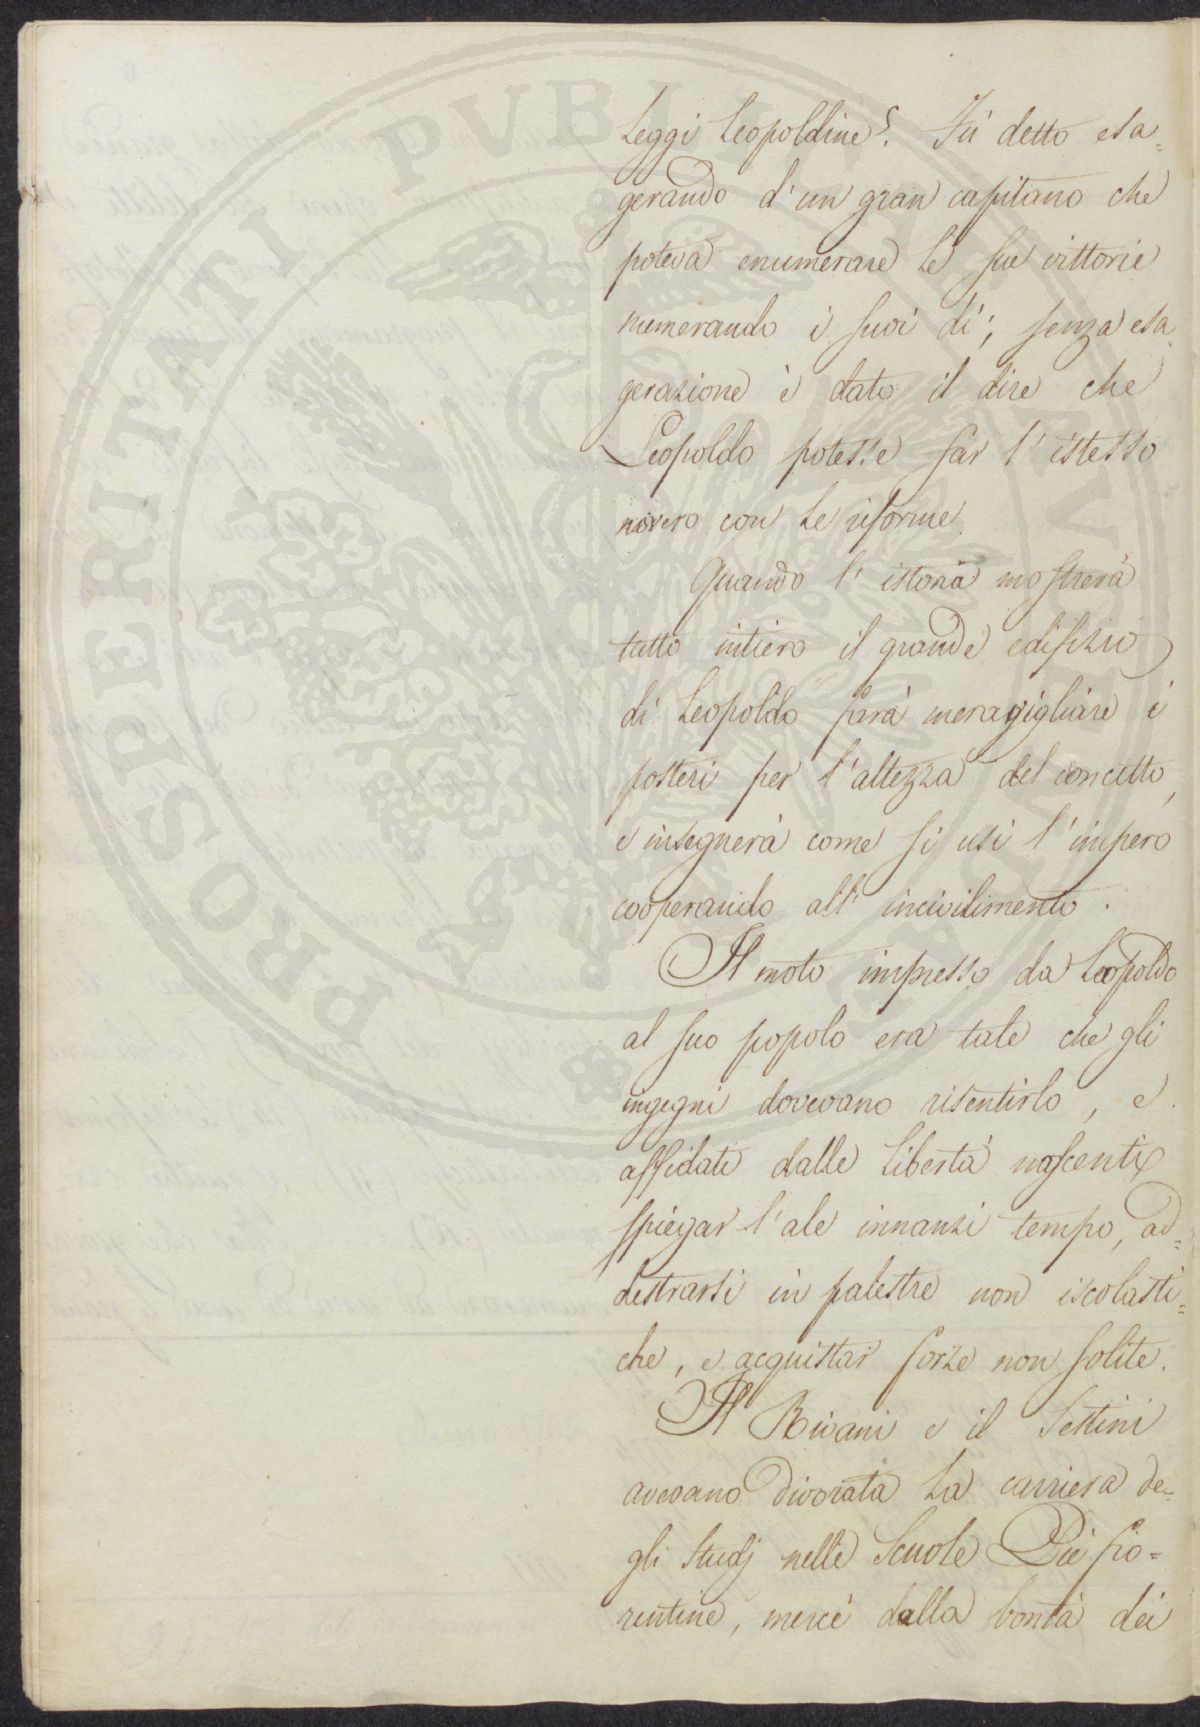 Leggi Leopoldine? Fù detto esa=
gerando d'un gran capitano che
poteva enumerare le sue vittorie
numerando i suoi dì; senza esa=
gerazione è dato il dire che
Leopoldo potesse far l'istesso
novero con le riforme.
Quando l'istoria mostrerà
tutto intiero il grande edifizio
di Leopoldo farà meravigliare i
posteri per l'altezza del concetto,
e insegnerà come si usi l'impero
cooperando all'incivilimento.
Il moto impresso da Leopoldo
al suo popolo era tale che gli
ingegni dovevano risentirlo, e
affidati dalle libertà nascenti
spiegar l'ale innanzi tempo, ad=
destrarsi in palestre non iscolasti=
che, e acquistar forze non solite.
Il Rivani e il Sestini
avevano divorata la carriera de=
gli Studj nelle Scuole Pie fio=
rentine, mercè dalla bontà dei
PROSPERITATI PVBLICAE